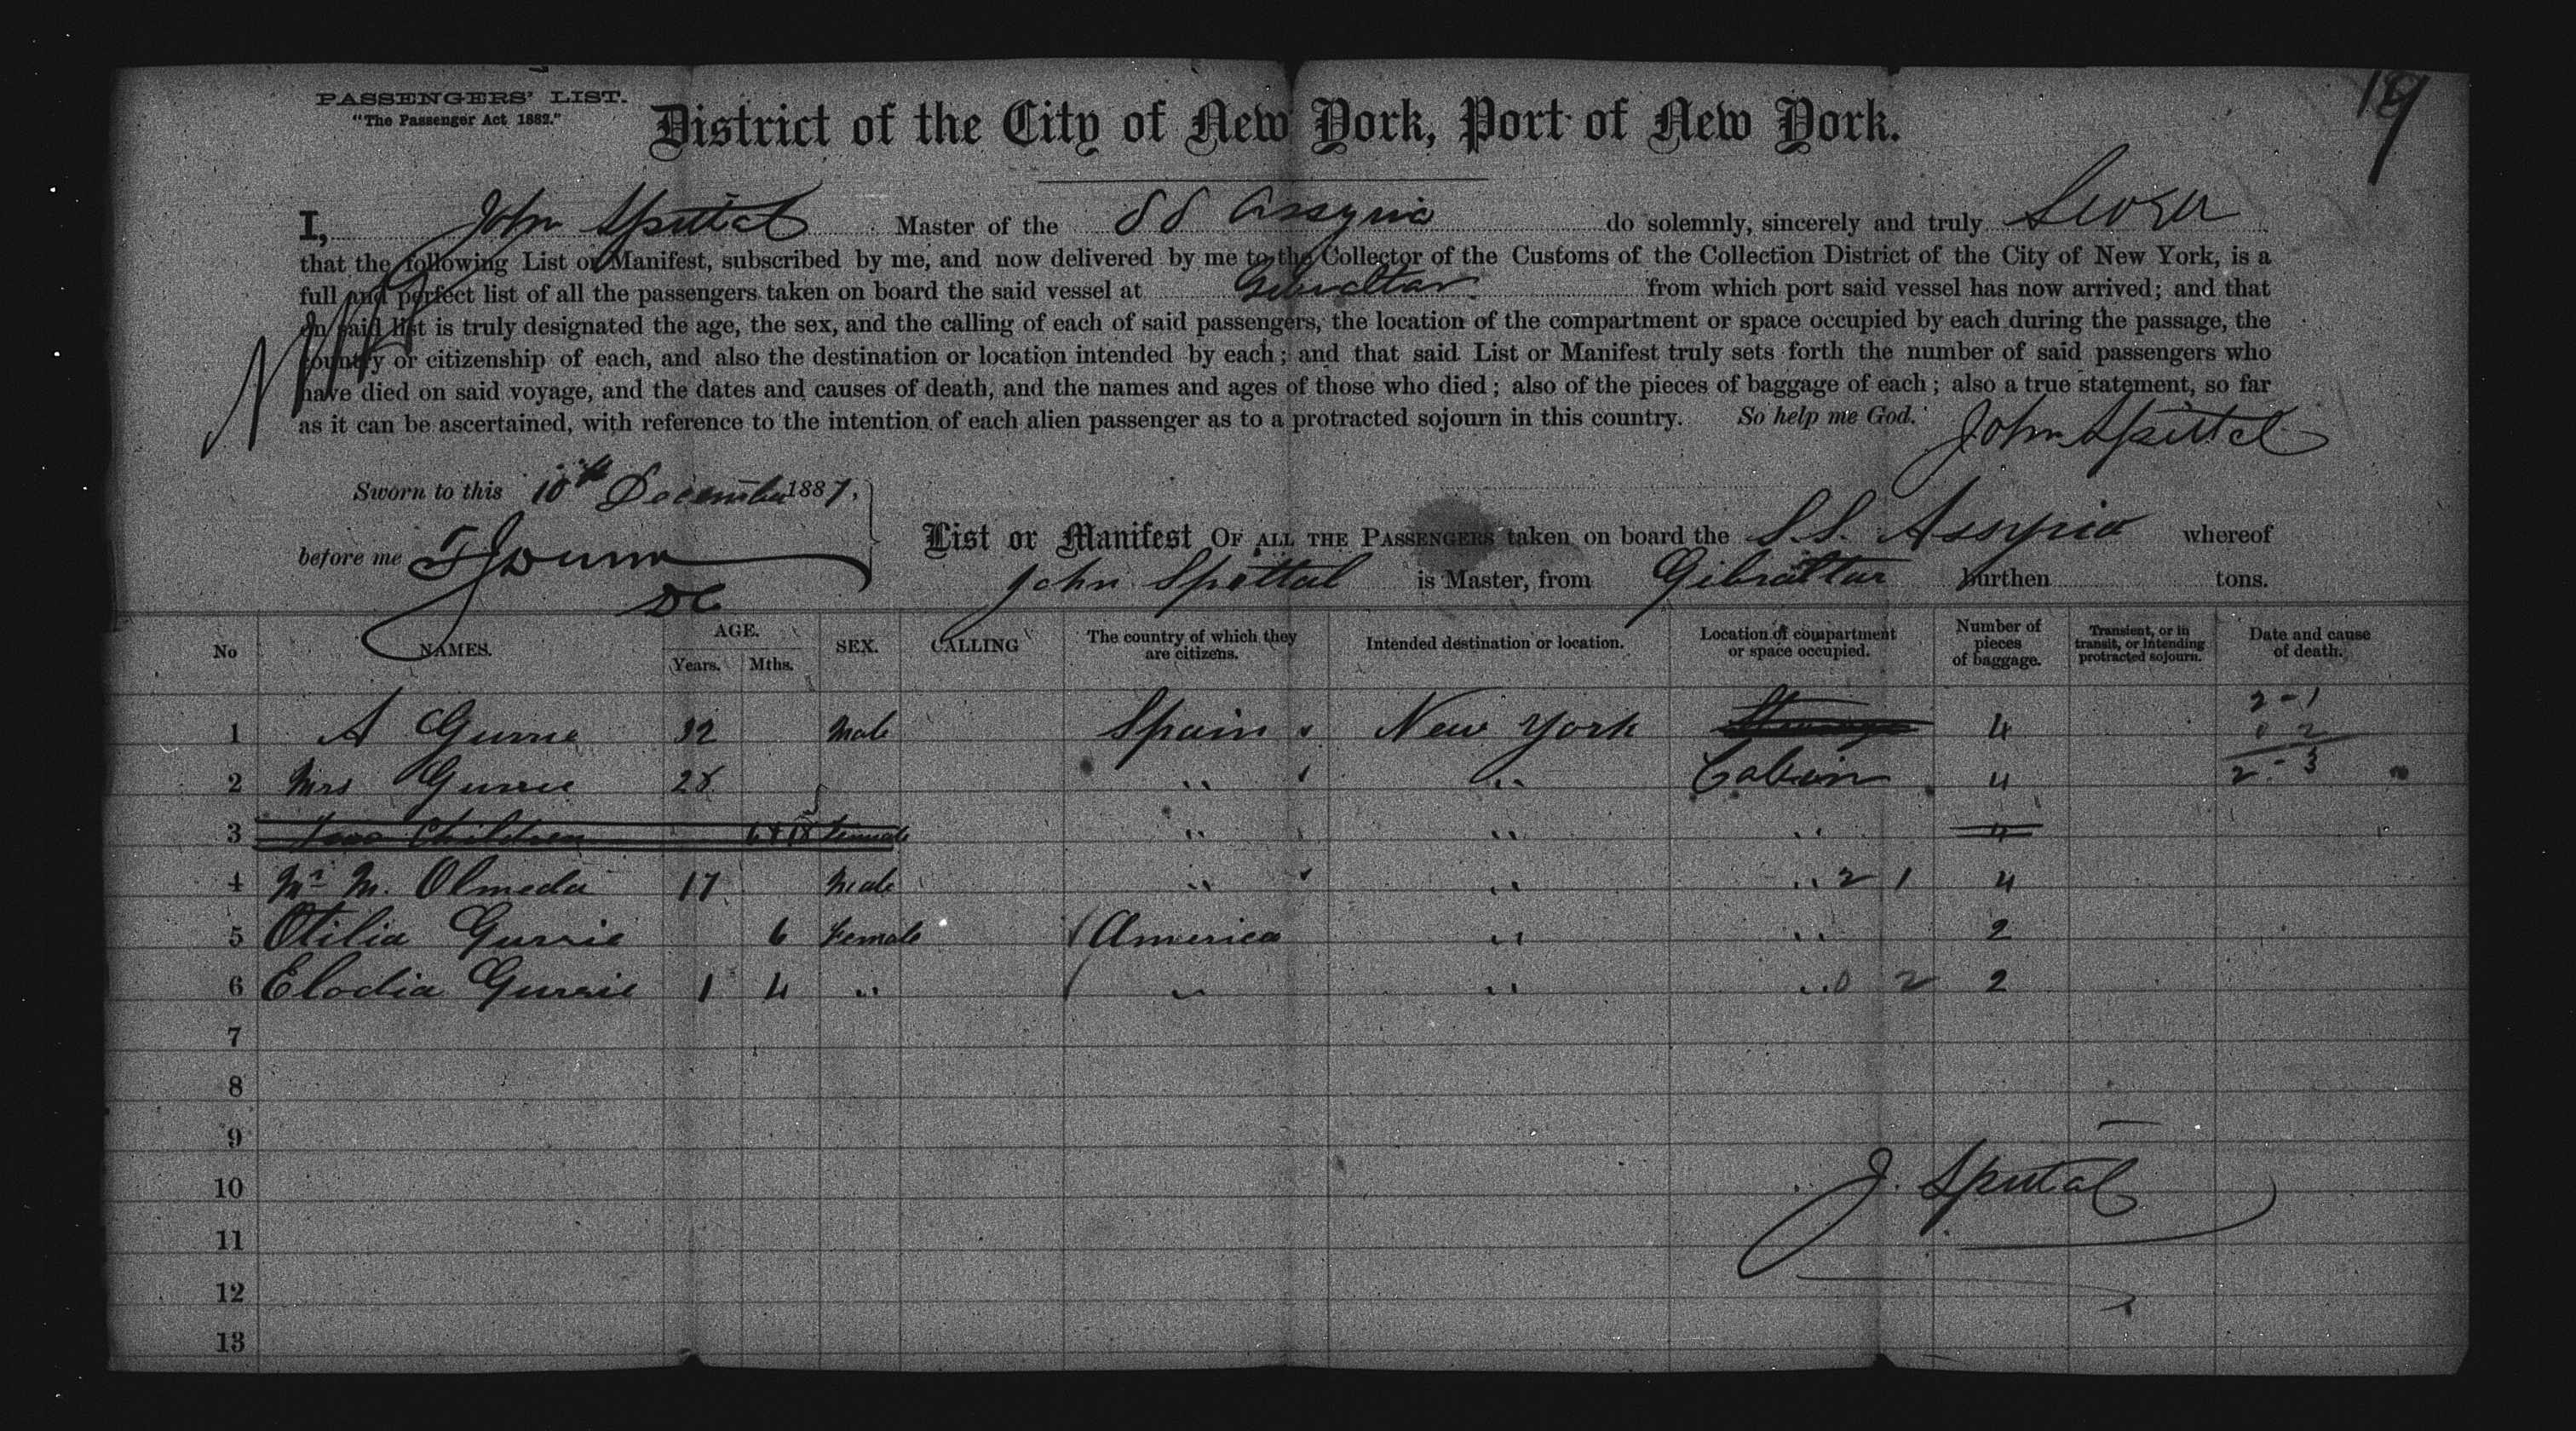 PASSENGERS' LIST.
"The Passenger Act 1882."
District of the City of New York, Port of New York.
I, John Spittal Master of the SS Assyria do solemnly, sincerely and truly Swear
that the following List or Manifest, subscribed by me, and now delivered by me to the Collector of the Customs of the Collection District of the City of New York, is a
full and perfect list of all the passengers taken on board the said vessel at Gibraltar from which port said vessel has now arrived; and that
on said list is truly designated the age, the sex, and the calling of each of said passengers, the location of the compartment or space occupied by each during the passage, the
country or citizenship of each, and also the destination or location intended by each; and that said List or Manifest truly sets forth the number of said passengers who
have died on said voyage, and the dates and causes of death, and the names and ages of those who died; also of the pieces of baggage of each; also a true statement, so far
as it can be ascertained, with reference to the intention of each alien passenger as to a protracted sojourn in this country. So help me God.
John Spittal
Sworn to this 10th December 1887,
before me
DC
List or Manifest OF ALL THE PASSENGERS taken on board the S.S. Assyria whereof
John Spittal is Master, from Gibraltar burthen tons.
No NAMES. AGE. Years. Mths. SEX. CALLING The country of which they are citizens. Intended destination or location. Location of compartment or space occupied. Number of pieces of baggage. Transient, or in transit, or intending protracted sojourn. Date and cause of death.
2-1
1 A 32 Male Spain New York Steerage 4 0 2
2 Mrs 28 " " Cabin 4 2-3
3 Two Children Female " " " 4
4 Mr M. Olmeda 17 Male " " " 2 1 4
5 Otilia Gurrie 6 Female America " " 2
6 Elodia Gurrie 1 4 " " " " 0 2 2
7
8
9
10
J. Spittal
11
12
13